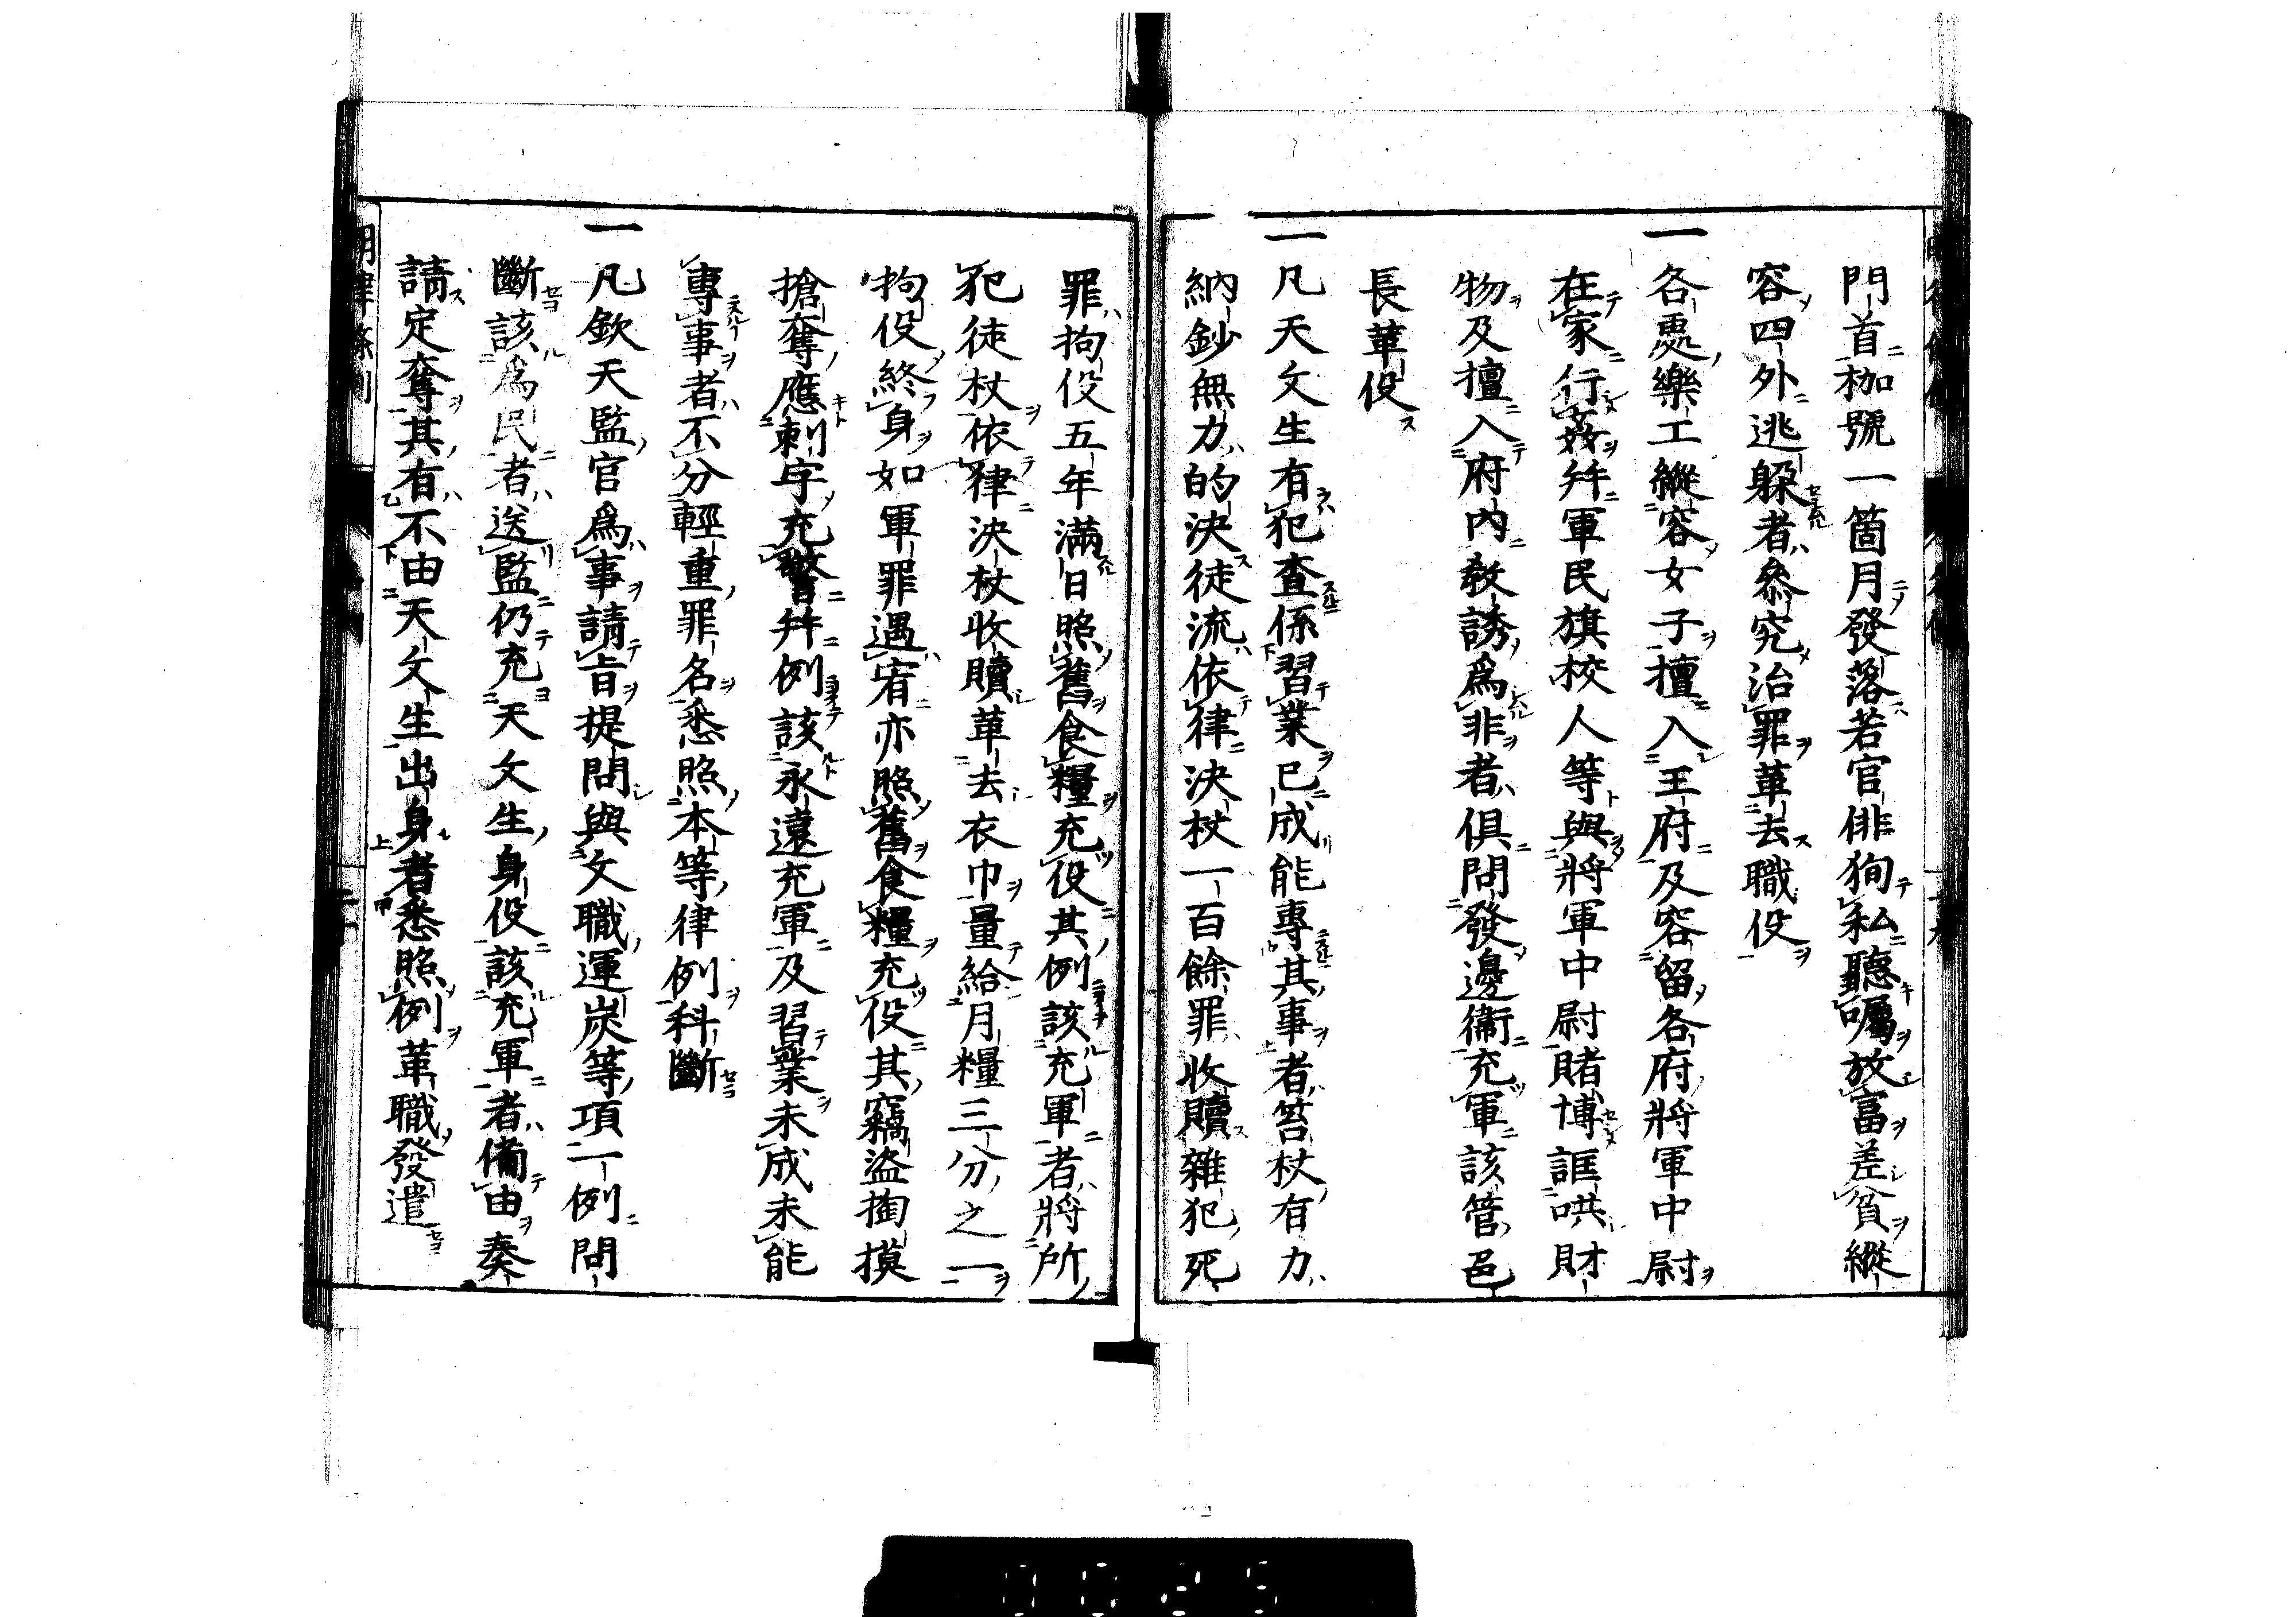 門首枷號一箇月發落若官俳狥私聽囑放富差貧縱
容四外逃躱者叅究治罪革去職役
一各處樂工縱容女子擅入王府及容留各府將軍中尉
在家行姦幷軍民旗校人等與將軍中尉賭博誆哄財
物及擅入府內敎誘爲非者俱問發邊衞充軍該管色
長革役
一凡天文生有犯查係習業已成能專其事者笞杖有力
納鈔無力的決徒流依律決杖一百餘罪收贖雜犯死
罪拘役五年滿日照舊食糧充役其例該充軍者將所
犯徒杖依律決杖收贖革去衣巾量給月糧三分之一
拘役終身如軍罪遇宥亦照舊食糧充役其竊盜掏摸
搶奪應刺字充警幷例該永遠充軍及習業未成未能
專事者不分輕重罪名悉照本等律例科斷
一凡欽天監官爲事請旨提問與文職運炭等項一例問
斷該爲民者送監仍充天文生身役該充軍者備由奏
請定奪其有不由天文生出身者悉照例革職發遣